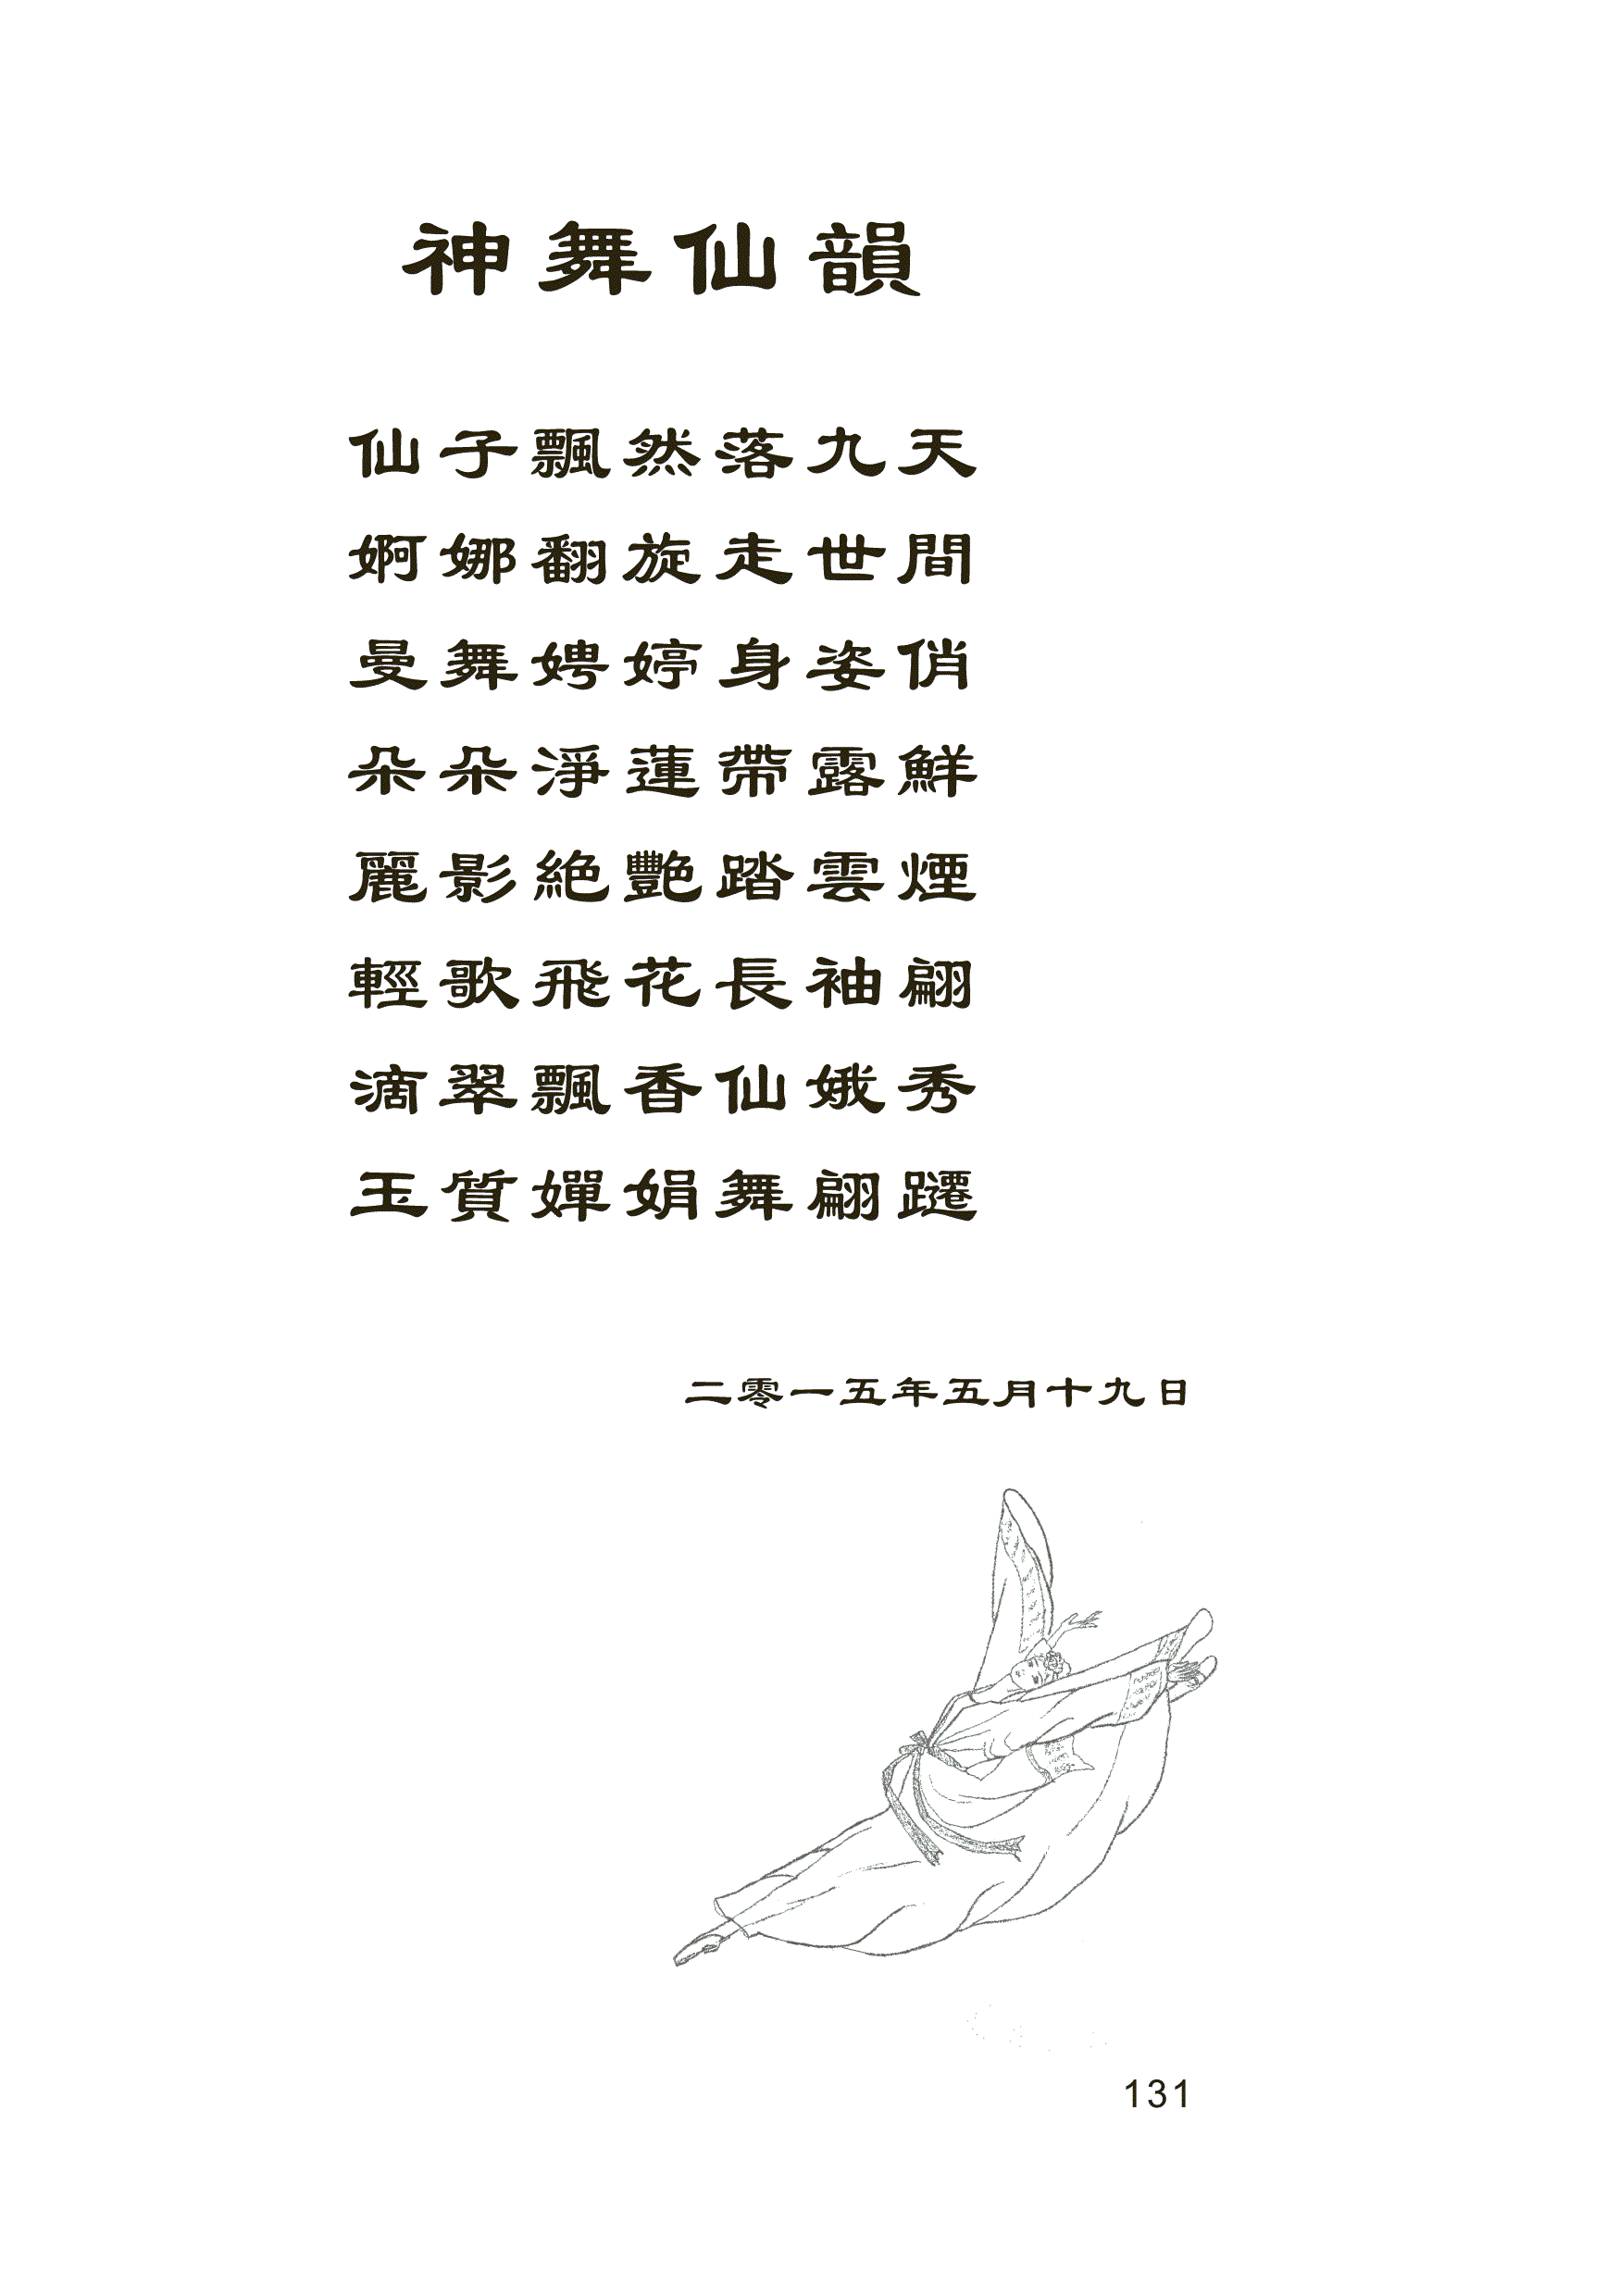 神舞仙韻
仙子飄然落九天
婀娜翻旋走世間
曼舞娉婷身姿俏
朵朵淨蓮帶露鮮
麗影絕艷踏雲煙
輕歌飛花長袖翩
滴翠飄香仙娥秀
玉質嬋娟舞翩躚
二零一五年五月十九日
131